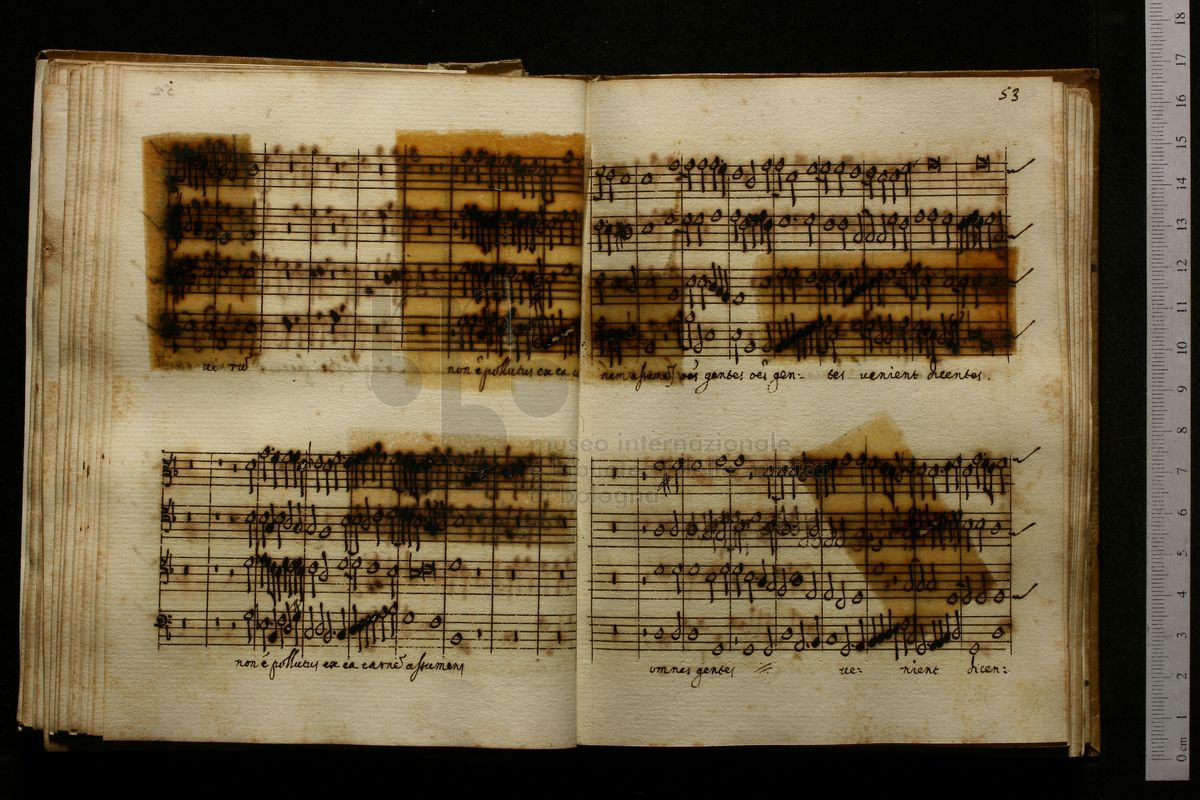 53
ui tū
non ē pollutus ex ea
nem assumēs oēs gentes oēs gen- tes uenient dicentes.
non ē pollutus ex ea carnē assumens
omnes gentes // ue- nient dicen-
museo internazionale
di bologna
0 cm 1 2 3 4 5 6 7 8 9 10 11 12 13 14 15 16 17 18